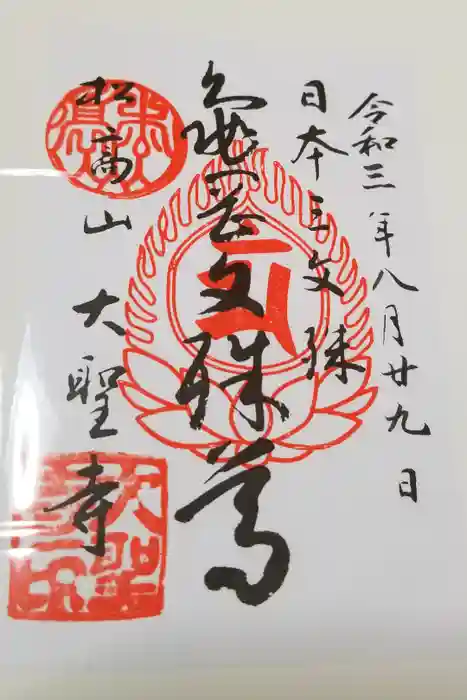 令和三年八月廿九日
日本三文殊
亀岡文殊尊
松高山大聖寺